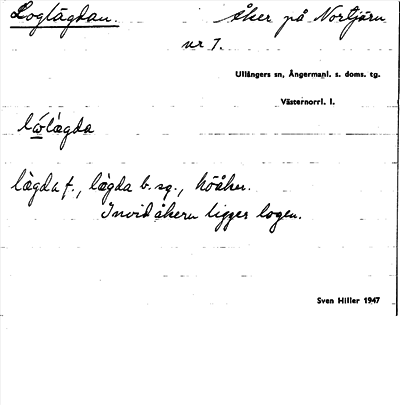 Loglägdan. åker på Norrtjärn
nr 7.
Ullångers sn, Ångermanl. s. doms. tg.
Västernorrl. l.
lólägda
lägda f., lägda b. sg., höåker.
Invid åkern ligger logen.
Sven Hiller 1947